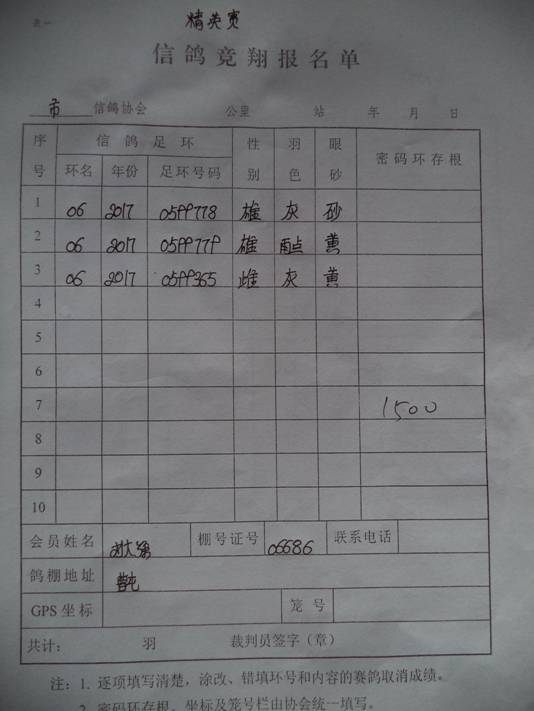 表一
精英赛
信鸽竞翔报名单
市 信鸽协会 公里 站 年 月 日
序号 信鸽足环 性别 羽色 眼砂 密码环存根
环名 年份 足环号码
1 06 2017 0599778 雄 灰 砂
2 06 2017 0599779 雄 雨点 黄
3 06 2017 0599365 雌 灰 黄
4
5
6
7 1500
8
9
10
会员姓名 棚号证号 06686 联系电话
鸽棚地址
GPS坐标 笼号
共计: 羽 裁判员签字（章）
注：1. 逐项填写清楚，涂改、错填环号和内容的赛鸽取消成绩。
2. 密码环存根、坐标及笼号栏由协会统一填写。